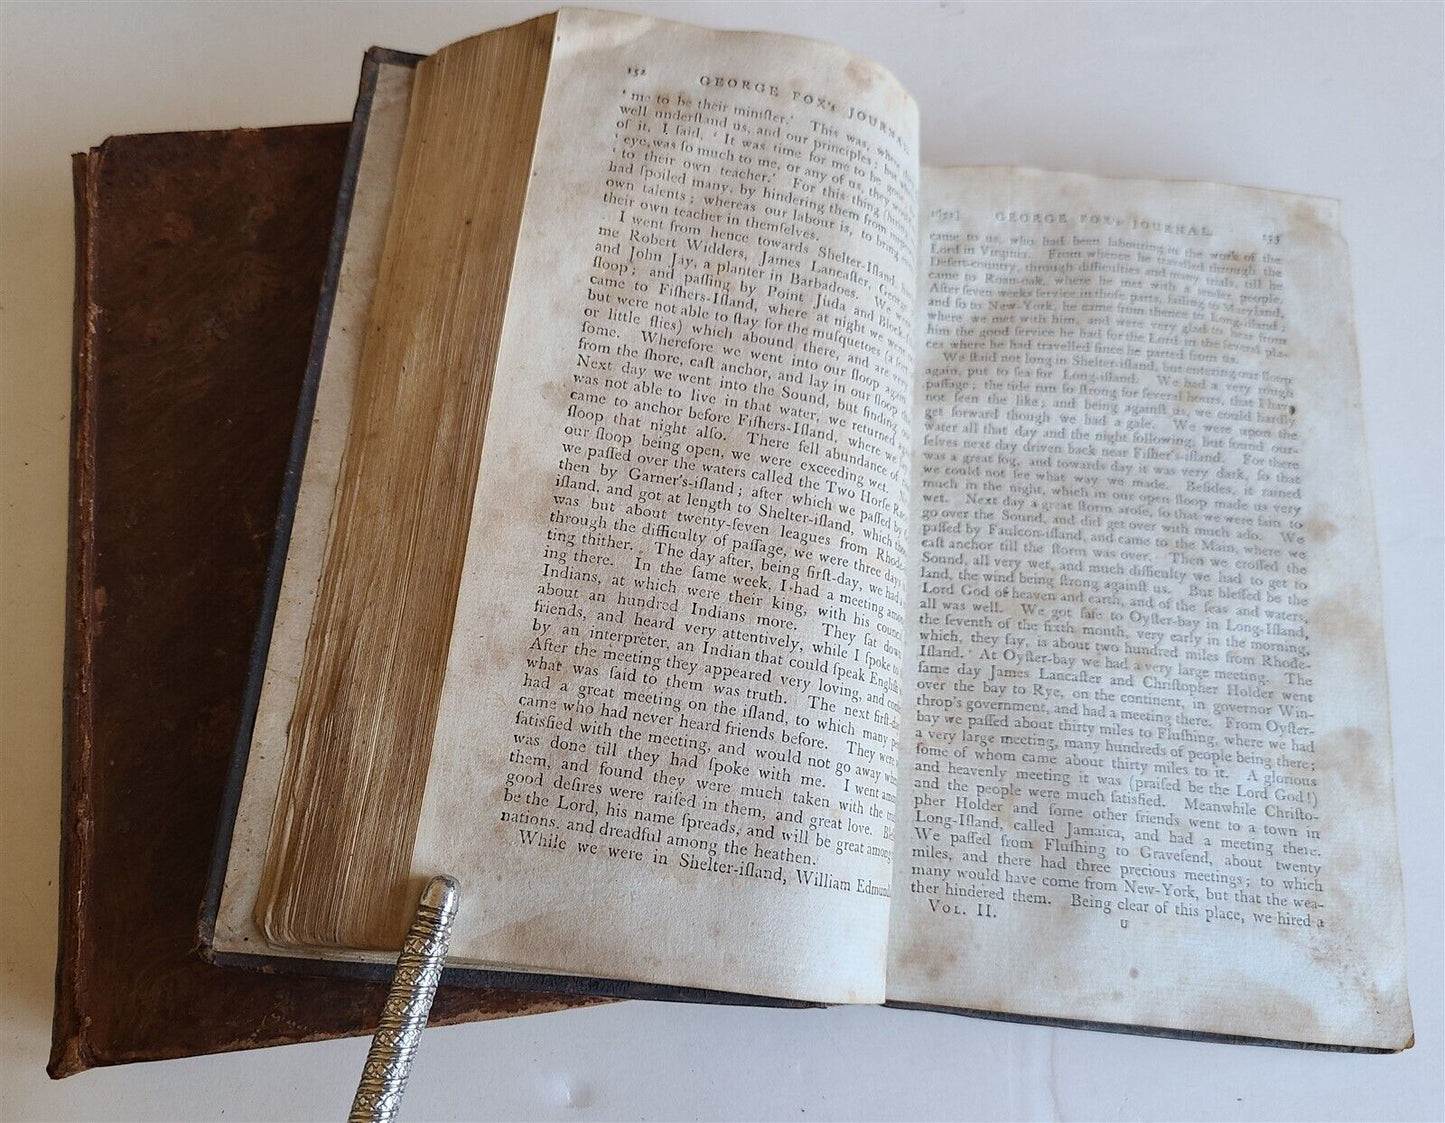 152 GEORGE FOX's JOURNAL
‘ me to be their miniſter.’ This was, where
well underſtand us, and our principles; but
of it, I ſaid, ‘ It was time for me to be gone
‘ eye, was ſo much to me, or any of us, they would
‘ to their own teacher.’ For this thing
had ſpoiled many, by hindering them from
own talents; whereas our labour is, to bring
their own teacher in themſelves.
I went from hence towards Shelter-Iſland,
me Robert Widders, James Lancaſter, George
and John Jay, a planter in Barbadoes. We
ſloop; and paſſing by Point Juda and Block
came to Fiſhers-Iſland, where at night we went
but were not able to ſtay for the muſquetoes (a
or little flies) which abound there, and are very
ſome. Wherefore we went into our ſloop again
from the ſhore, caſt anchor, and lay in our ſloop
Next day we went into the Sound, but finding our
was not able to live in that water, we returned
came to anchor before Fiſhers-Iſland, where we
ſloop that night alſo. There fell abundance of
our ſloop being open, we were exceeding wet.
we paſſed over the waters called the Two Horſe
then by Garner's-iſland; after which we paſſed by
iſland, and got at length to Shelter-iſland, which
was but about twenty-ſeven leagues from Rhode-
through the difficulty of paſſage, we were three days
ting thither. The day after, being firſt-day, we had a
ing there. In the ſame week, I had a meeting
Indians, at which were their king, with his
about an hundred Indians more. They ſat down
friends, and heard very attentively, while I ſpoke to
by an interpreter, an Indian that could ſpeak Engliſh
After the meeting they appeared very loving, and
what was ſaid to them was truth. The next firſt-
had a great meeting on the iſland, to which many
came who had never heard friends before. They were
ſatisfied with the meeting, and would not go away
was done till they had ſpoke with me. I went
them, and found they were much taken with the
good deſires were raiſed in them, and great love.
be the Lord, his name ſpreads, and will be great among
nations, and dreadful among the heathen.
While we were in Shelter-iſland, William
GEORGE FOX's JOURNAL. 153
came to us, who had been labouring in the work of the
Lord in Virginia. From whence he travelled through the
Deſert-country, through difficulties and many trials, till he
came to Roan-oak, where he met with a tender people.
After ſeven weeks ſervice in thoſe parts, ſailing to Maryland,
and ſo to New-York, he came from thence to Long-iſland;
where we met with him, and were very glad to hear from
him the good ſervice he had for the Lord in the ſeveral pla-
ces where he had travelled ſince he parted from us.
We ſtaid not long in Shelter-iſland, but entering our ſloop
again, put to ſea for Long-iſland. We had a very rough
paſſage; the tide run ſo ſtrong for ſeveral hours, that I have
not ſeen the like; and being againſt us, we could hardly
get forward though we had a gale. We were upon the
water all that day and the night following, but found our-
ſelves next day driven back near Fiſher's-iſland. For there
was a great fog, and towards day it was very dark, ſo that
we could not ſee what way we made. Beſides, it rained
much in the night, which in our open ſloop made us very
wet. Next day a great ſtorm aroſe, ſo that we were fain to
go over the Sound, and did get over with much ado. We
paſſed by Faulcon-iſland, and came to the Main, where we
caſt anchor till the ſtorm was over. Then we croſſed the
Sound, all very wet, and much difficulty we had to get to
land, the wind being ſtrong againſt us. But bleſſed be the
Lord God of heaven and earth, and of the ſeas and waters,
all was well. We got ſafe to Oyſter-bay in Long-Iſland,
the ſeventh of the ſixth month, very early in the morning,
which, they ſay, is about two hundred miles from Rhode-
Iſland. At Oyſter-bay we had a very large meeting. The
ſame day James Lancaſter and Chriſtopher Holder went
over the bay to Rye, on the continent, in governor Win-
throp's government, and had a meeting there. From Oyſter-
bay we paſſed about thirty miles to Fluſhing, where we had
a very large meeting, many hundreds of people being there;
ſome of whom came about thirty miles to it. A glorious
and heavenly meeting it was (praiſed be the Lord God!)
and the people were much ſatisfied. Meanwhile Chriſto-
pher Holder and ſome other friends went to a town in
Long-Iſland, called Jamaica, and had a meeting there.
We paſſed from Fluſhing to Graveſend, about twenty
miles, and there had three precious meetings; to which
many would have come from New-York, but that the wea-
ther hindered them. Being clear of this place, we hired a
VOL. II. U